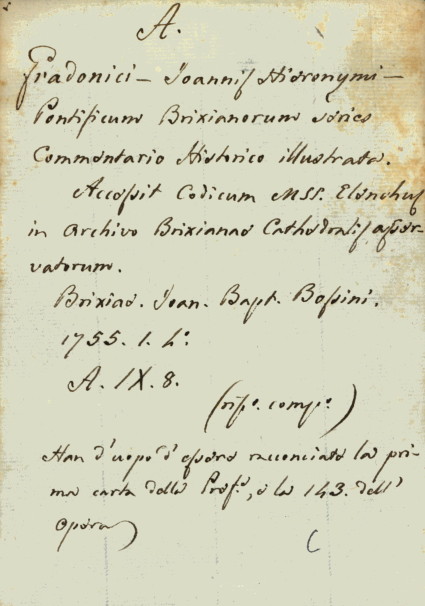 A.
Gradonici - Joannis Hieronymi -
Pontificum Brixianorum Series
Commentario Historico illustrata.
Accessit Codicum MSS. Elenchus
in Archivo Brixianae Cathedralis asser-
vatorum.
Brixiae. Joan. Bapt. Bossini.
1755. 1. 4º.
A. IX. 8.
(rip.e comp.e)
Han d'uopo d'essere racconciate la pri-
ma carta della Pref.e, e la 143. dell'
Opera)